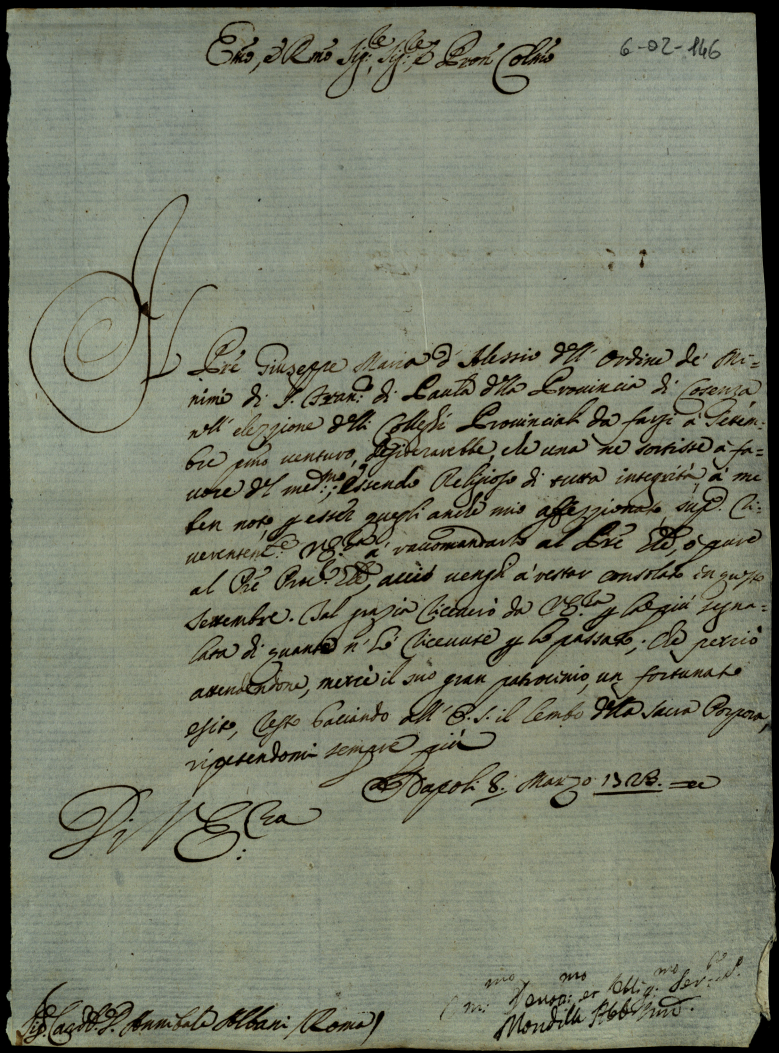 Emo, e Rmo Sigre, Sigre, e Pron Colmo
6-02-146
Il Prê Giuseppe Maria d'Alessio dell'Ordine de' Mi=
nimi di S. Fran.co di Paula della Provincia di Cosenza
nell'elezzione delli Colleghi Provinciali da farsi à Settem=
bre pmo venturo, desiderarebbe, che una ne sortisse à fa=
vore del med.mo, essendo Religioso di tutta integrità, à me
ben noto, y esser quegli anche mio affezzionato, sup.co Ri=
verentem.te V. E.za à raccomandarlo al Prê Gñle, ò pure
al Prê Proc.re Gñle, acciò venghi à restar consolato in questo
Settembre. Tal grazia riceverò da V. E.za y la più segna=
lata di quante n'hò ricevute y lo passato; che perciò
attendendone, mercè il suo gran patrocinio, un fortunato
esito, resto baciando all'E. S. il lembo della Sacra Porpora,
ripetendomi sempre più
Napoli 8. Marzo 1728.
Di V. E.cza
Sig. Card. D. Annibale Albani (Roma)
Devot.mo et Oblig.mo Ser.re
Mondilla